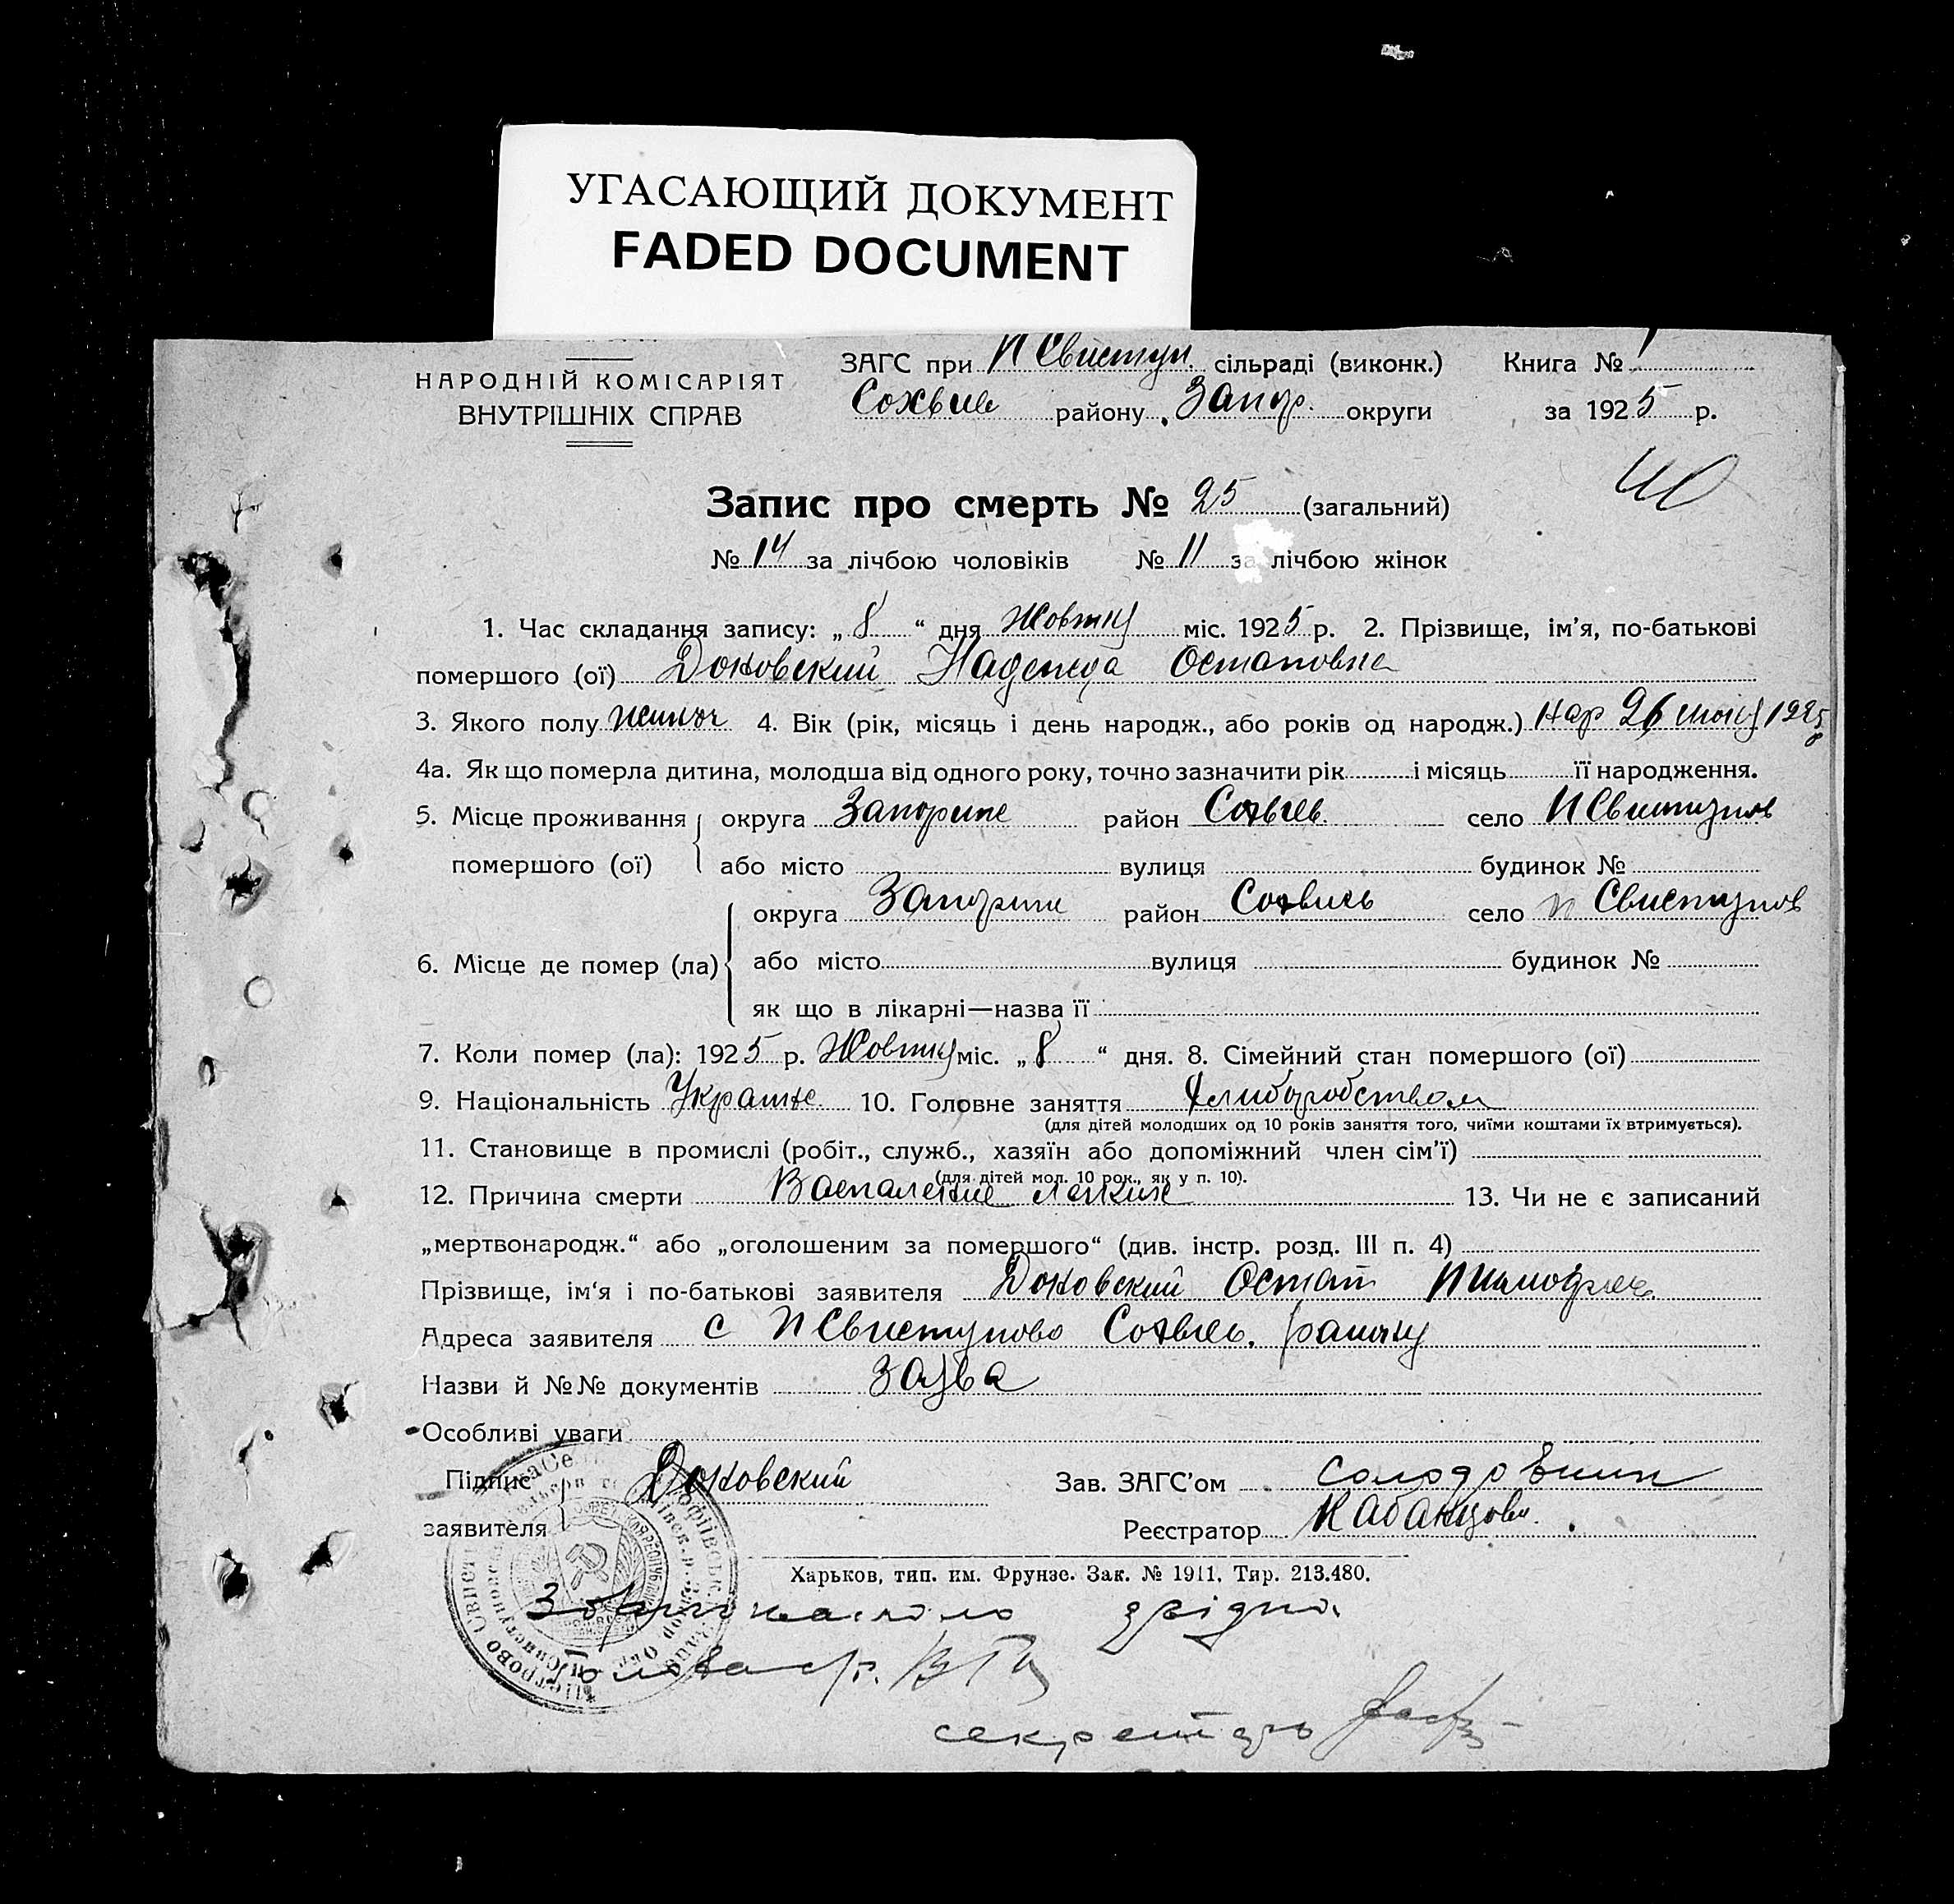 УГАСАЮЩИЙ ДОКУМЕНТ
FADED DOCUMENT
НАРОДНІЙ КОМІСАРІЯТ
ВНУТРІШНІХ СПРАВ
ЗАГС при П Свистун. сільраді (виконк.)
Софвієв району Запор. округи
Книга № 1
за 1925 р.
40
Запис про смерть № 25 (загальний)
№ 14 за лічбою чоловіків № 11 за лічбою жінок
1. Час складання запису: „ 8 “ дня Жовтня міс. 1925 р. 2. Прізвище, ім'я, по-батькові
помершого (ої) Доковский Надежда Остаповна
3. Якого полу жиноч 4. Вік (рік, місяць і день народж., або років од народж.) Нар 26 1925
4а. Як що померла дитина, молодша від одного року, точно зазначити рік і місяць її народження.
5. Місце проживання округа Запориже район Софвієв. село П Свистунов
помершого (ої) або місто вулиця будинок №
округа Запориже район Софвиев село п Свистунов
6. Місце де помер (ла) або місто вулиця будинок №
як що в лікарні—назва її
7. Коли помер (ла): 1925 р. Жовтня міс. „ 8 “ дня. 8. Сімейний стан помершого (ої)
9. Національність Украине. 10. Головне заняття Хлиборобством
(для дітей молодших од 10 років заняття того, чиїми коштами їх втримується).
11. Становище в промислі (робіт., служб., хазяїн або допоміжний член сім'ї)
(для дітей мол. 10 рок., як у п. 10).
12. Причина смерти Воспаление легких 13. Чи не є записаний
„мертвонародж.“ або „оголошеним за помершого“ (див. інстр. розд. III п. 4)
Прізвище, ім'я і по-батькові заявителя Доковский Остап
Адреса заявителя с П Свистуново Софвиев. району
Назви й №№ документів заява
Особливі уваги
Підпис Доковский Зав. ЗАГС'ом Солодовник
заявителя
Реєстратор Кабанцова.
Харьков, тип. им. Фрунзе. Зак. № 1911. Тир. 213.480.
З згідно.
Голова с/г.
секретарь